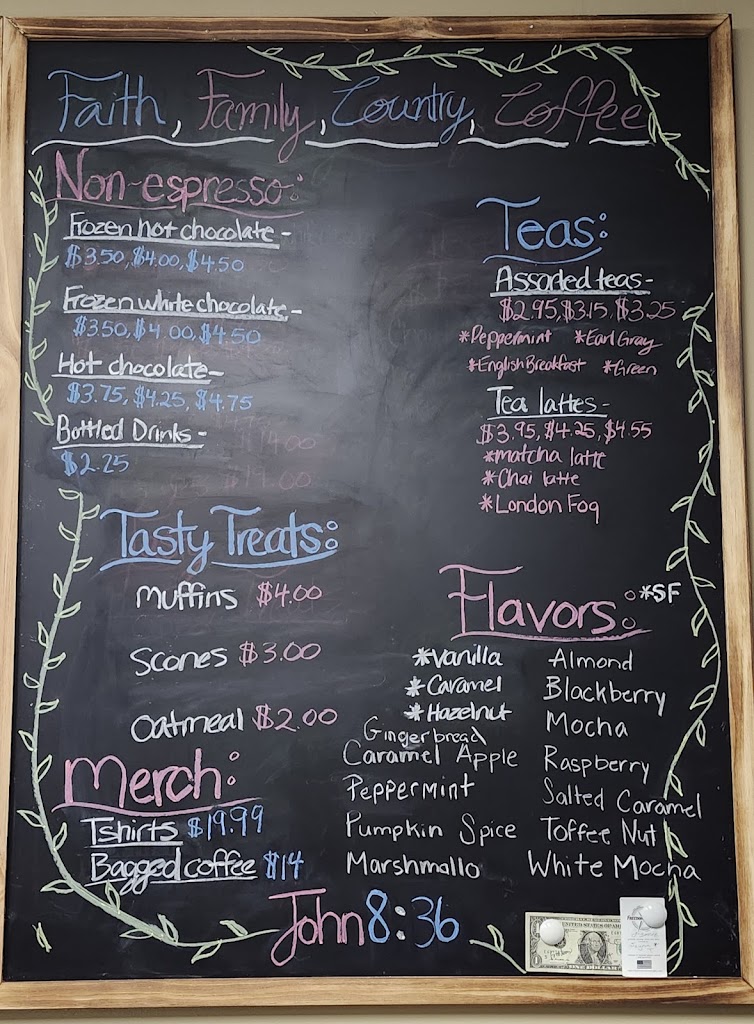 Faith, Family, Country, Coffee
Non-espresso:
Frozen hot chocolate -
$3.50, $4.00, $4.50
Frozen white chocolate -
$3.50, $4.00, $4.50
Hot chocolate -
$3.75, $4.25, $4.75
Bottled Drinks -
$2.25
Teas:
Assorted teas -
$2.95, $3.15, $3.25
*Peppermint *Earl Gray
*English Breakfast *Green
Tea lattes -
$3.95, $4.25, $4.55
*matcha latte
*Chai latte
*London Fog
Tasty Treats:
Muffins $4.00
Scones $3.00
Oatmeal $2.00
Merch:
Tshirts $19.99
Bagged coffee $14
Flavors: *SF
*Vanilla
*Caramel
*Hazelnut
Gingerbread
Caramel Apple
Peppermint
Pumpkin Spice
Marshmallo
Almond
Blackberry
Mocha
Raspberry
Salted Caramel
Toffee Nut
White Mocha
John 8:36
ONE DOLLAR